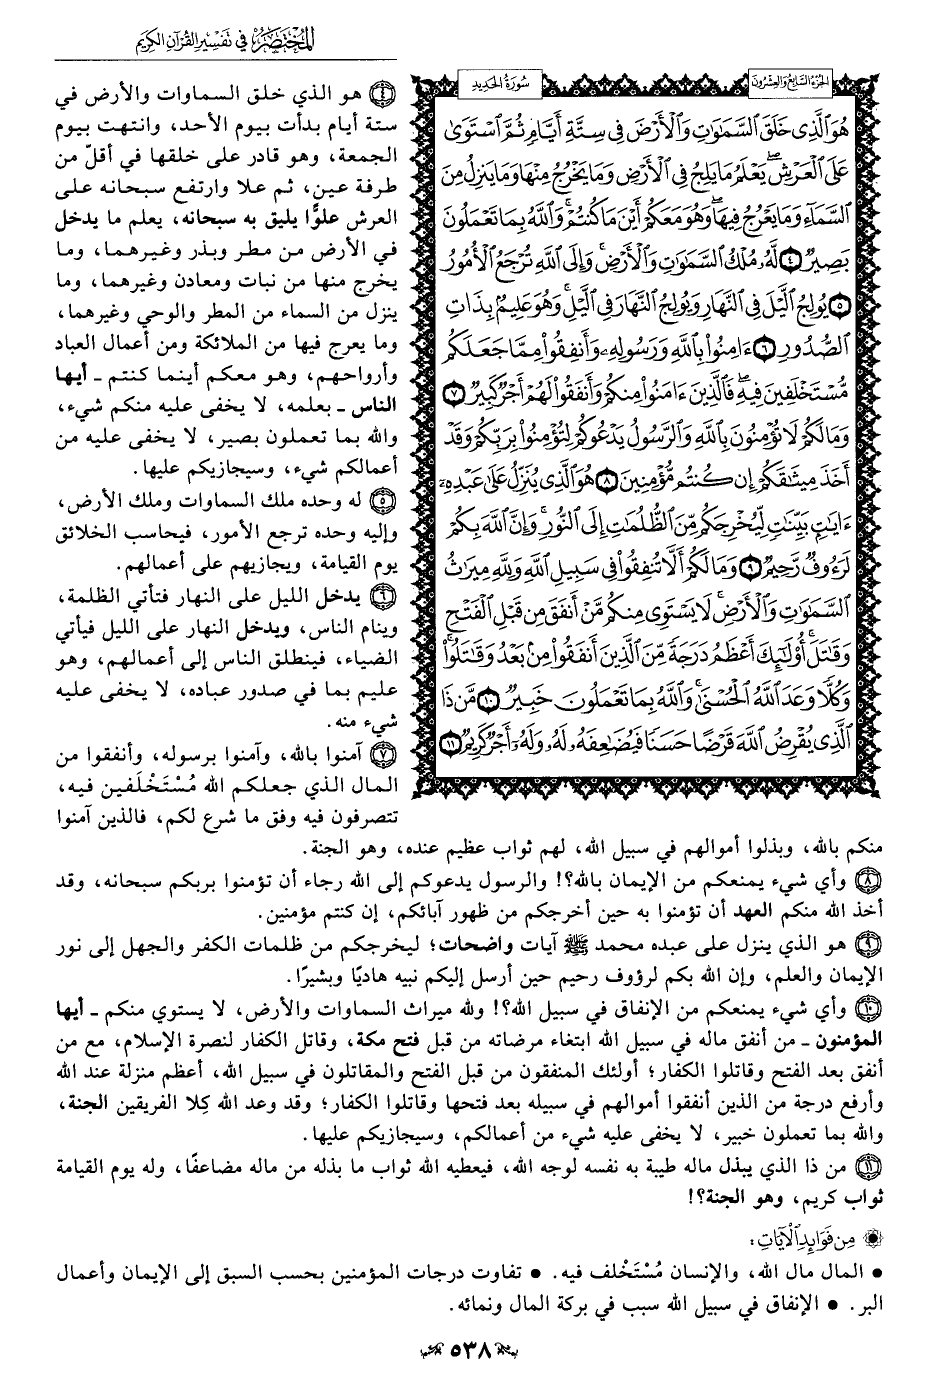 المختصر في تفسير القرآن الكريم
الجزء السابع والعشرون
سورة الحديد
هُوَ ٱلَّذِى خَلَقَ ٱلسَّمَٰوَٰتِ وَٱلۡأَرۡضَ فِى سِتَّةِ أَيَّامٖ ثُمَّ ٱسۡتَوَىٰ
عَلَى ٱلۡعَرۡشِۖ يَعۡلَمُ مَا يَلِجُ فِى ٱلۡأَرۡضِ وَمَا يَخۡرُجُ مِنۡهَا وَمَا يَنزِلُ مِنَ
ٱلسَّمَآءِ وَمَا يَعۡرُجُ فِيهَاۖ وَهُوَ مَعَكُمۡ أَيۡنَ مَا كُنتُمۡۚ وَٱللَّهُ بِمَا تَعۡمَلُونَ
بَصِيرٞ ٤ لَّهُۥ مُلۡكُ ٱلسَّمَٰوَٰتِ وَٱلۡأَرۡضِۚ وَإِلَى ٱللَّهِ تُرۡجَعُ ٱلۡأُمُورُ
٥ يُولِجُ ٱلَّيۡلَ فِى ٱلنَّهَارِ وَيُولِجُ ٱلنَّهَارَ فِى ٱلَّيۡلِۚ وَهُوَ عَلِيمُۢ بِذَاتِ
ٱلصُّدُورِ ٦ ءَامِنُواْ بِٱللَّهِ وَرَسُولِهِۦ وَأَنفِقُواْ مِمَّا جَعَلَكُم
مُّسۡتَخۡلَفِينَ فِيهِۖ فَٱلَّذِينَ ءَامَنُواْ مِنكُمۡ وَأَنفَقُواْ لَهُمۡ أَجۡرٞ كَبِيرٞ ٧
وَمَا لَكُمۡ لَا تُؤۡمِنُونَ بِٱللَّهِ وَٱلرَّسُولُ يَدۡعُوكُمۡ لِتُؤۡمِنُواْ بِرَبِّكُمۡ وَقَدۡ
أَخَذَ مِيثَٰقَكُمۡ إِن كُنتُم مُّؤۡمِنِينَ ٨ هُوَ ٱلَّذِى يُنَزِّلُ عَلَىٰ عَبۡدِهِۦٓ
ءَايَٰتِۭ بَيِّنَٰتٖ لِّيُخۡرِجَكُم مِّنَ ٱلظُّلُمَٰتِ إِلَى ٱلنُّورِۚ وَإِنَّ ٱللَّهَ بِكُمۡ
لَرَءُوفٞ رَّحِيمٞ ٩ وَمَا لَكُمۡ أَلَّا تُنفِقُواْ فِى سَبِيلِ ٱللَّهِ وَلِلَّهِ مِيرَٰثُ
ٱلسَّمَٰوَٰتِ وَٱلۡأَرۡضِۚ لَا يَسۡتَوِى مِنكُم مَّنۡ أَنفَقَ مِن قَبۡلِ ٱلۡفَتۡحِ
وَقَٰتَلَۚ أُوْلَٰٓئِكَ أَعۡظَمُ دَرَجَةٗ مِّنَ ٱلَّذِينَ أَنفَقُواْ مِنۢ بَعۡدُ وَقَٰتَلُواْۚ
وَكُلّٗا وَعَدَ ٱللَّهُ ٱلۡحُسۡنَىٰۚ وَٱللَّهُ بِمَا تَعۡمَلُونَ خَبِيرٞ ١٠ مَّن ذَا
ٱلَّذِى يُقۡرِضُ ٱللَّهَ قَرۡضًا حَسَنٗا فَيُضَٰعِفَهُۥ لَهُۥ وَلَهُۥٓ أَجۡرٞ كَرِيمٞ ١١
٤ هو الذي خلق السماوات والأرض في
ستة أيام بدأت بيوم الأحد، وانتهت بيوم
الجمعة، وهو قادر على خلقها في أقلّ من
طرفة عين، ثم علا وارتفع سبحانه على
العرش علوًّا يليق به سبحانه، يعلم ما يدخل
في الأرض من مطر وبذر وغيرهما، وما
يخرج منها من نبات ومعادن وغيرهما، وما
ينزل من السماء من المطر والوحي وغيرهما،
وما يعرج فيها من الملائكة ومن أعمال العباد
وأرواحهم، وهو معكم أينما كنتم ـ أيها
الناس ـ بعلمه، لا يخفى عليه منكم شيء،
والله بما تعملون بصير، لا يخفى عليه من
أعمالكم شيء، وسيجازيكم عليها.
٥ له وحده ملك السماوات وملك الأرض،
وإليه وحده ترجع الأمور، فيحاسب الخلائق
يوم القيامة، ويجازيهم على أعمالهم.
٦ يدخل الليل على النهار فتأتي الظلمة،
وينام الناس، ويدخل النهار على الليل فيأتي
الضياء، فينطلق الناس إلى أعمالهم، وهو
عليم بما في صدور عباده، لا يخفى عليه
شيء منه.
٧ آمنوا بالله، وآمنوا برسوله، وأنفقوا من
المال الذي جعلكم الله مُسْتَخْلَفين فيه،
تتصرفون فيه وفق ما شرع لكم، فالذين آمنوا
منكم بالله، وبذلوا أموالهم في سبيل الله، لهم ثواب عظيم عنده، وهو الجنة.
٨ وأي شيء يمنعكم من الإيمان بالله؟! والرسول يدعوكم إلى الله رجاء أن تؤمنوا بربكم سبحانه، وقد
أخذ الله منكم العهد أن تؤمنوا به حين أخرجكم من ظهور آبائكم، إن كنتم مؤمنين.
٩ هو الذي ينزل على عبده محمد ﷺ آيات واضحات؛ ليخرجكم من ظلمات الكفر والجهل إلى نور
الإيمان والعلم، وإن الله بكم لرؤوف رحيم حين أرسل إليكم نبيه هاديًا وبشيرًا.
١٠ وأي شيء يمنعكم من الإنفاق في سبيل الله؟! ولله ميراث السماوات والأرض، لا يستوي منكم ـ أيها
المؤمنون ـ من أنفق ماله في سبيل الله ابتغاء مرضاته من قبل فتح مكة، وقاتل الكفار لنصرة الإسلام، مع من
أنفق بعد الفتح وقاتلوا الكفار؛ أولئك المنفقون من قبل الفتح والمقاتلون في سبيل الله، أعظم منزلة عند الله
وأرفع درجة من الذين أنفقوا أموالهم في سبيله بعد فتحها وقاتلوا الكفار؛ وقد وعد الله كِلا الفريقين الجنة،
والله بما تعملون خبير، لا يخفى عليه شيء من أعمالكم، وسيجازيكم عليها.
١١ من ذا الذي يبذل ماله طيبة به نفسه لوجه الله، فيعطيه الله ثواب ما بذله من ماله مضاعفًا، وله يوم القيامة
ثواب كريم، وهو الجنة؟!
من فوائد الآيات:
• المال مال الله، والإنسان مُسْتَخْلف فيه. • تفاوت درجات المؤمنين بحسب السبق إلى الإيمان وأعمال
البر. • الإنفاق في سبيل الله سبب في بركة المال ونمائه.
٥٣٨